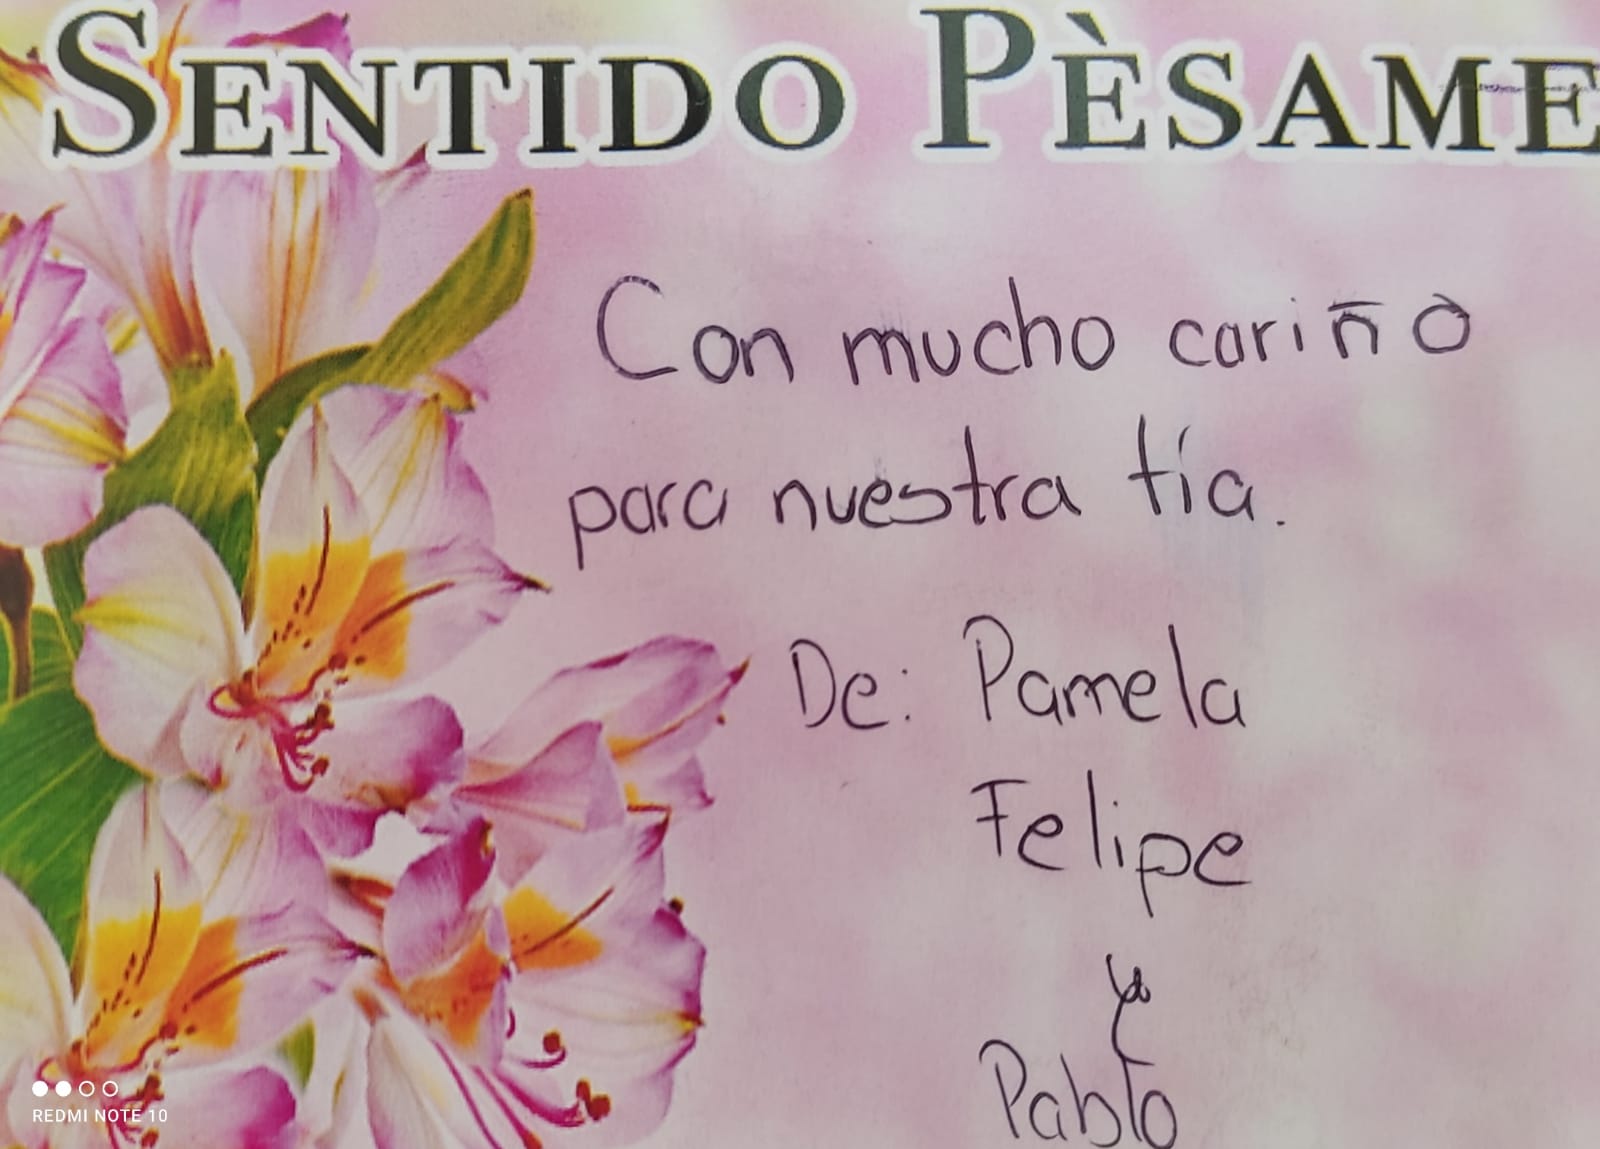 SENTIDO PÈSAME
Con mucho cariño
para nuestra tía.
De: Pamela
Felipe
y
Pablo
REDMI NOTE 10